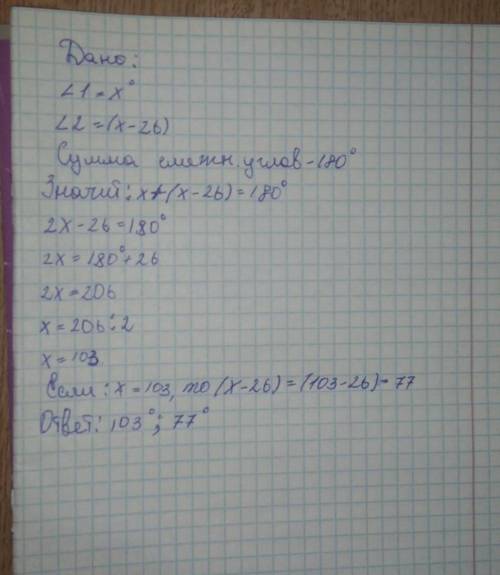 Дано:
∠1 = x°
∠2 = (x-26)
Сумма смежн. углов - 180°
Значит: x+(x-26)=180°
2x-26=180°
2x=180°+26
2x=206
x=206:2
x=103
Если: x=103, то (x-26)=(103-26)=77
Ответ: 103°; 77°